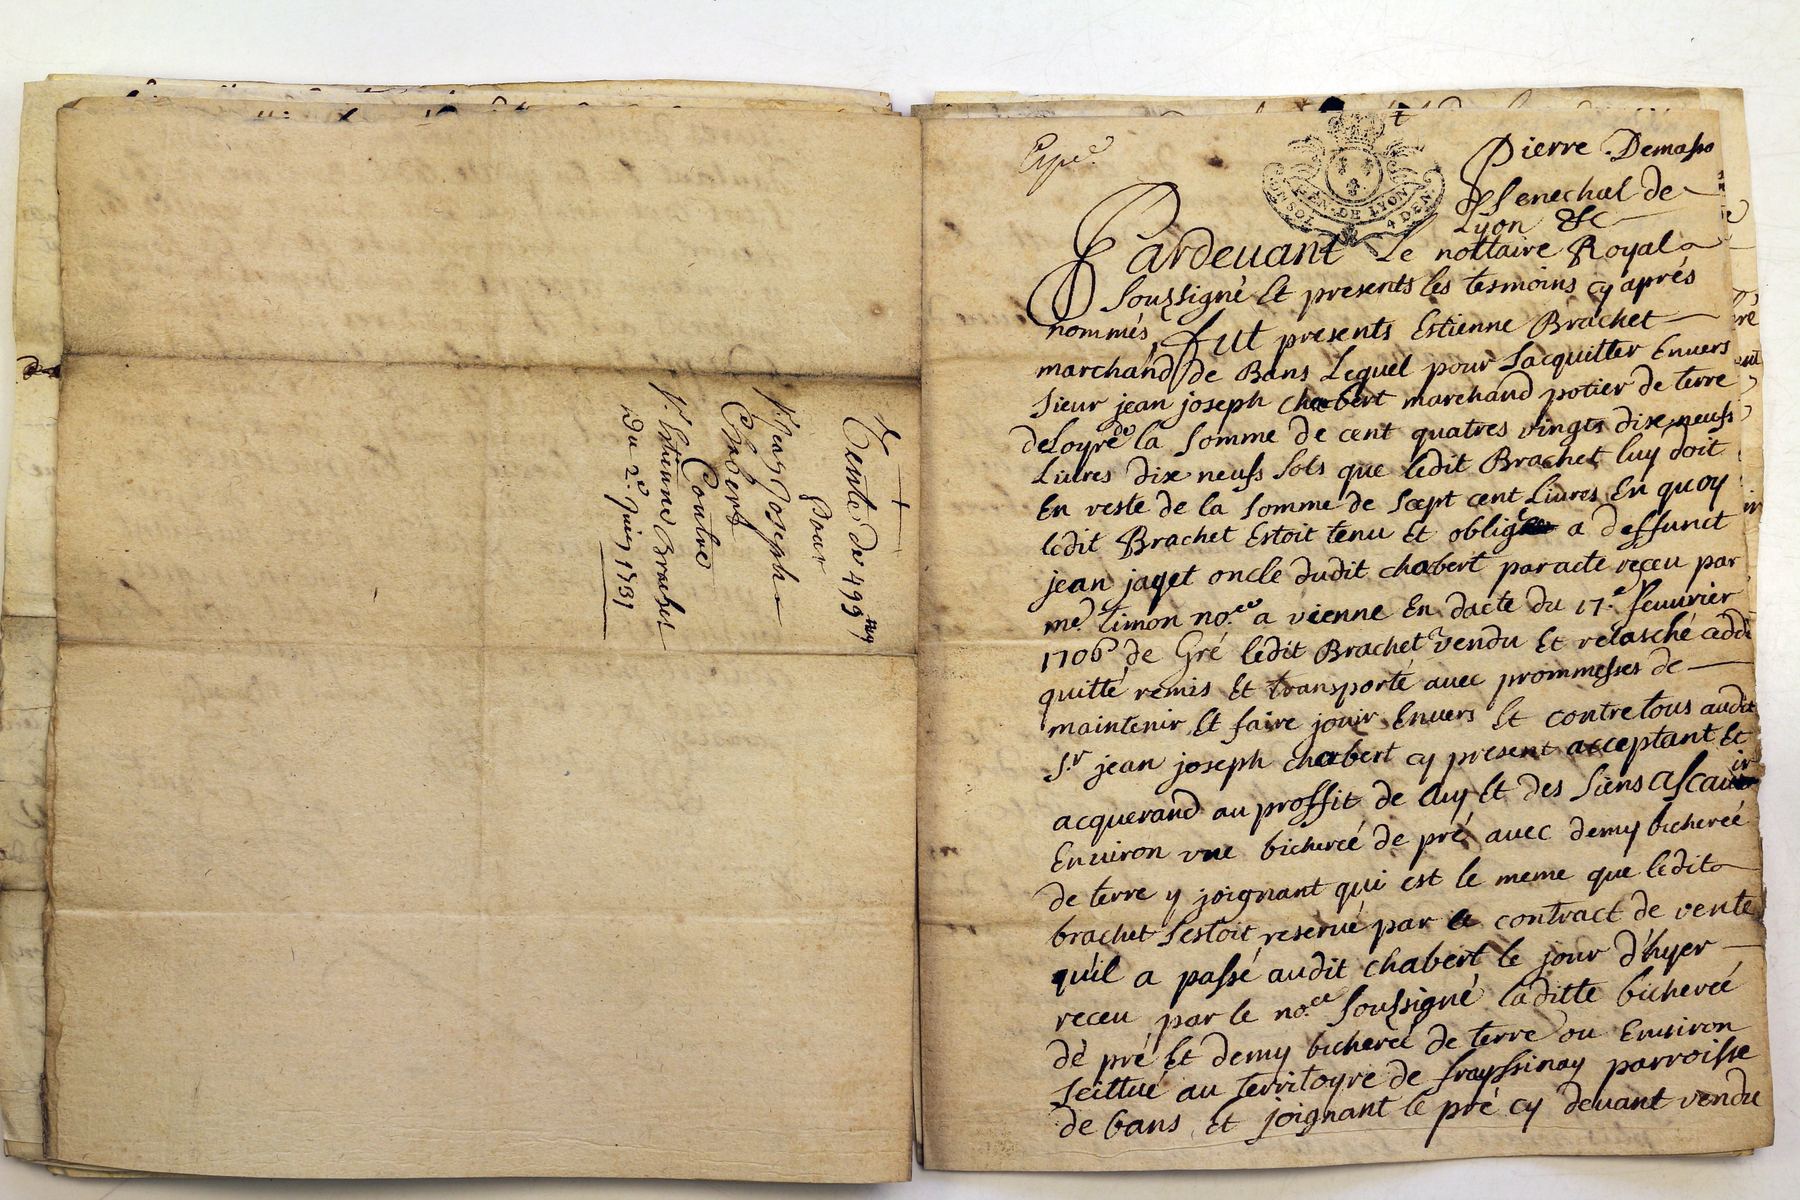 Vente de 499
Pour
Sr Jean Joseph
Chabert
Contre
Sr Estienne Brachet
du 2e Juin 1731
Expe
GEN. DE LYON
UN SOL 4 DEN
Pierre Demasso
Senechal de
Lyon &c
Pardevant Le nottaire Royal
Soussigné Et presents les tesmoins cy aprés
nommés, fut presents Estienne Brachet
marchand de Bans Lequel pour Sacquitter Envers
Sieur jean joseph chabert marchand potier de terre
de Loyre de la Somme de cent quatres vingts dix neufs
Livres dix neufs Sols que ledit Brachet luy doit
En reste de la Somme de Sept cent Livres En quoy
ledit Brachet Estoit tenu Et obligé a deffunct
jean jaqet oncle dudit chabert par acte reçeu par
me. timon no.re a vienne En dacte du 17.e fevurier
1706 de Gré ledit Brachet vendu Et relasché cedde
quitté remis Et transporté avec prommesses de
maintenir Et faire jouir Envers Et contre tous audit
S.r jean joseph chabert cy present acceptant Et
acquerand au proffit de luy Et des Siens ascavoir
Environ une bicherée de pré avec demy bicherée
de terre y joignant qui est le meme que ledit
brachet Sestoit reservé par le contract de vente
qu'il a passé audit chabert le jour d'hyer
receu par le no.re Soussigné laditte bicherée
de pré Et demy bicherée de terre ou Environ
Scittué au territoyre de frayssinay parroisse
de bans Et joignant le pré cy devant vendu